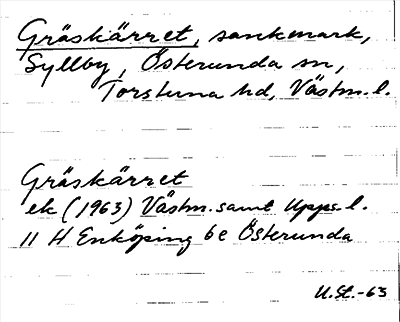 Gräskärret, sankmark,
Syllby, Österunda sn,
Torstuna hd, Västm. l.
Gräskärret
ek (1963) Västm. samt Upps. l.
11 H Enköping 6 e Österunda
U.St.-63